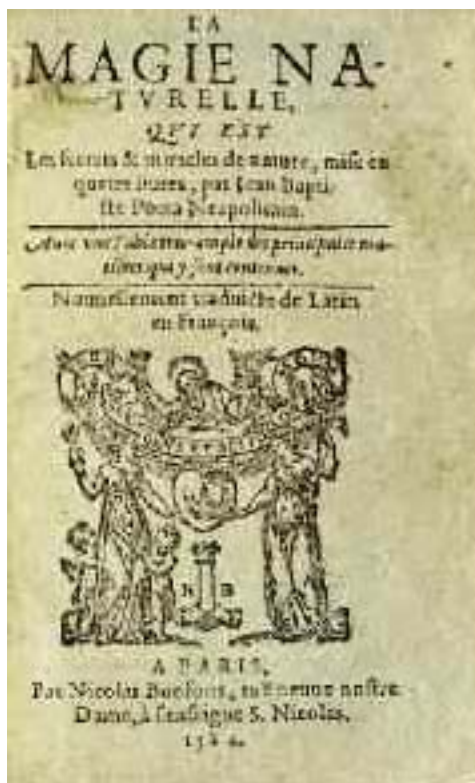 LA
MAGIE NA-
TVRELLE,
QVI EST
Les secrets & miracles de nature, mise en
quatre liures, par Iean Bapti-
ste Porta Neapolitain.
Auec vne Table ample des principales ma-
tieres qui y sont contenues.
Nouuellement traduicte de Latin
en François.
N B
A PARIS,
Par Nicolas Bonfons, rue neuue nostre
Dame, à l'enseigne S. Nicolas.